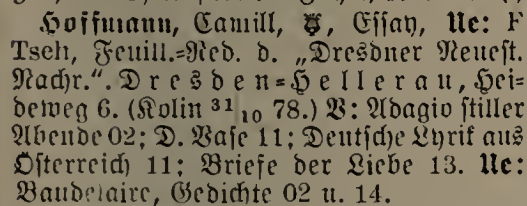 Hoffmann, Camill, Essay, Ue: F
Tsch, Feuill.=Red. d. „Dresdner Neuest.
Nachr.". Dresden=Hellerau, Hei=
deweg 6. (Kolin 31/10 78.) V: Adagio stiller
Abende 02; D. Vase 11; Deutsche Lyrik aus
Österreich 11; Briefe der Liebe 13. Ue:
Baudelaire, Gedichte 02 u. 14.